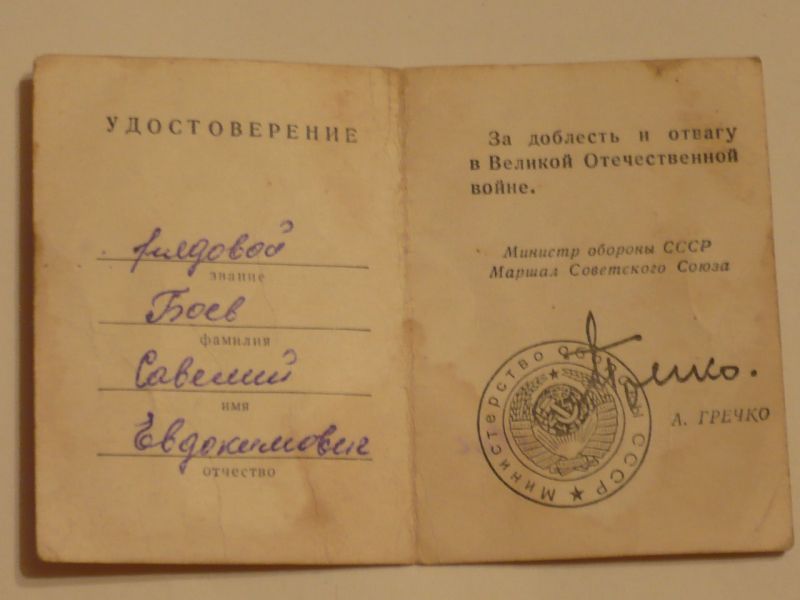 УДОСТОВЕРЕНИЕ
рядовой
звание
Боев
фамилия
Савелий
имя
Евдокимович
отчество
За доблесть и отвагу
в Великой Отечественной
войне.
Министр обороны СССР
Маршал Советского Союза
Гречко.
Министерство Обороны СССР
А. ГРЕЧКО